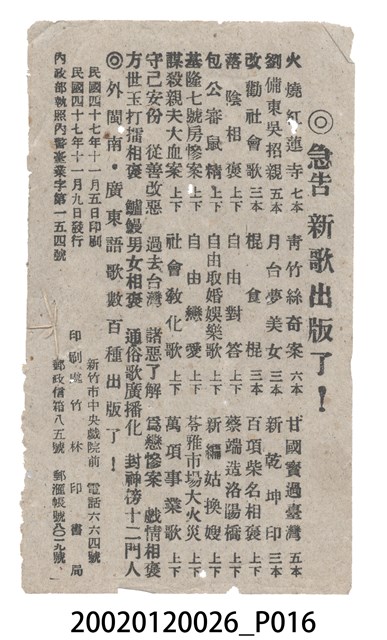 ◎急告 新歌出版了!
火燒紅蓮寺七本 青竹絲奇案六本 甘國寶過臺灣五本
劉備東吳招親五本 月台夢美女三本 新乾坤印三本
改勸社會歌三本 棍食棍三本 百項柴名相褒上下
落陰相褒上下 自由對答上下 蔡端造洛陽橋上下
包公審鼠精上下 自由取婚娛樂歌上下 新編姑換嫂上下
基隆七號房慘案上下 自由戀愛上下 苓雅市場大火災上下
謀殺親夫大血案上下 社會教化歌上下 萬項事業歌上下
守己安份 從善改惡 過去台灣 諸惡了解 為戀慘案 戲情相褒
方世玉打擂相褒 鱸鰻男女相褒 通俗歌廣播化 封神榜十二門人
◎外閩南·廣東語歌數百種出版了!
民國四十七年十一月五日印刷
民國四十七年十一月九日發行
內政部執照內警臺業字第一五四號
新竹市中央戲院前 電話六六四號
印刷處竹林印書局
郵政信箱八五號 郵滙帳號八〇一九號
20020120026_P016